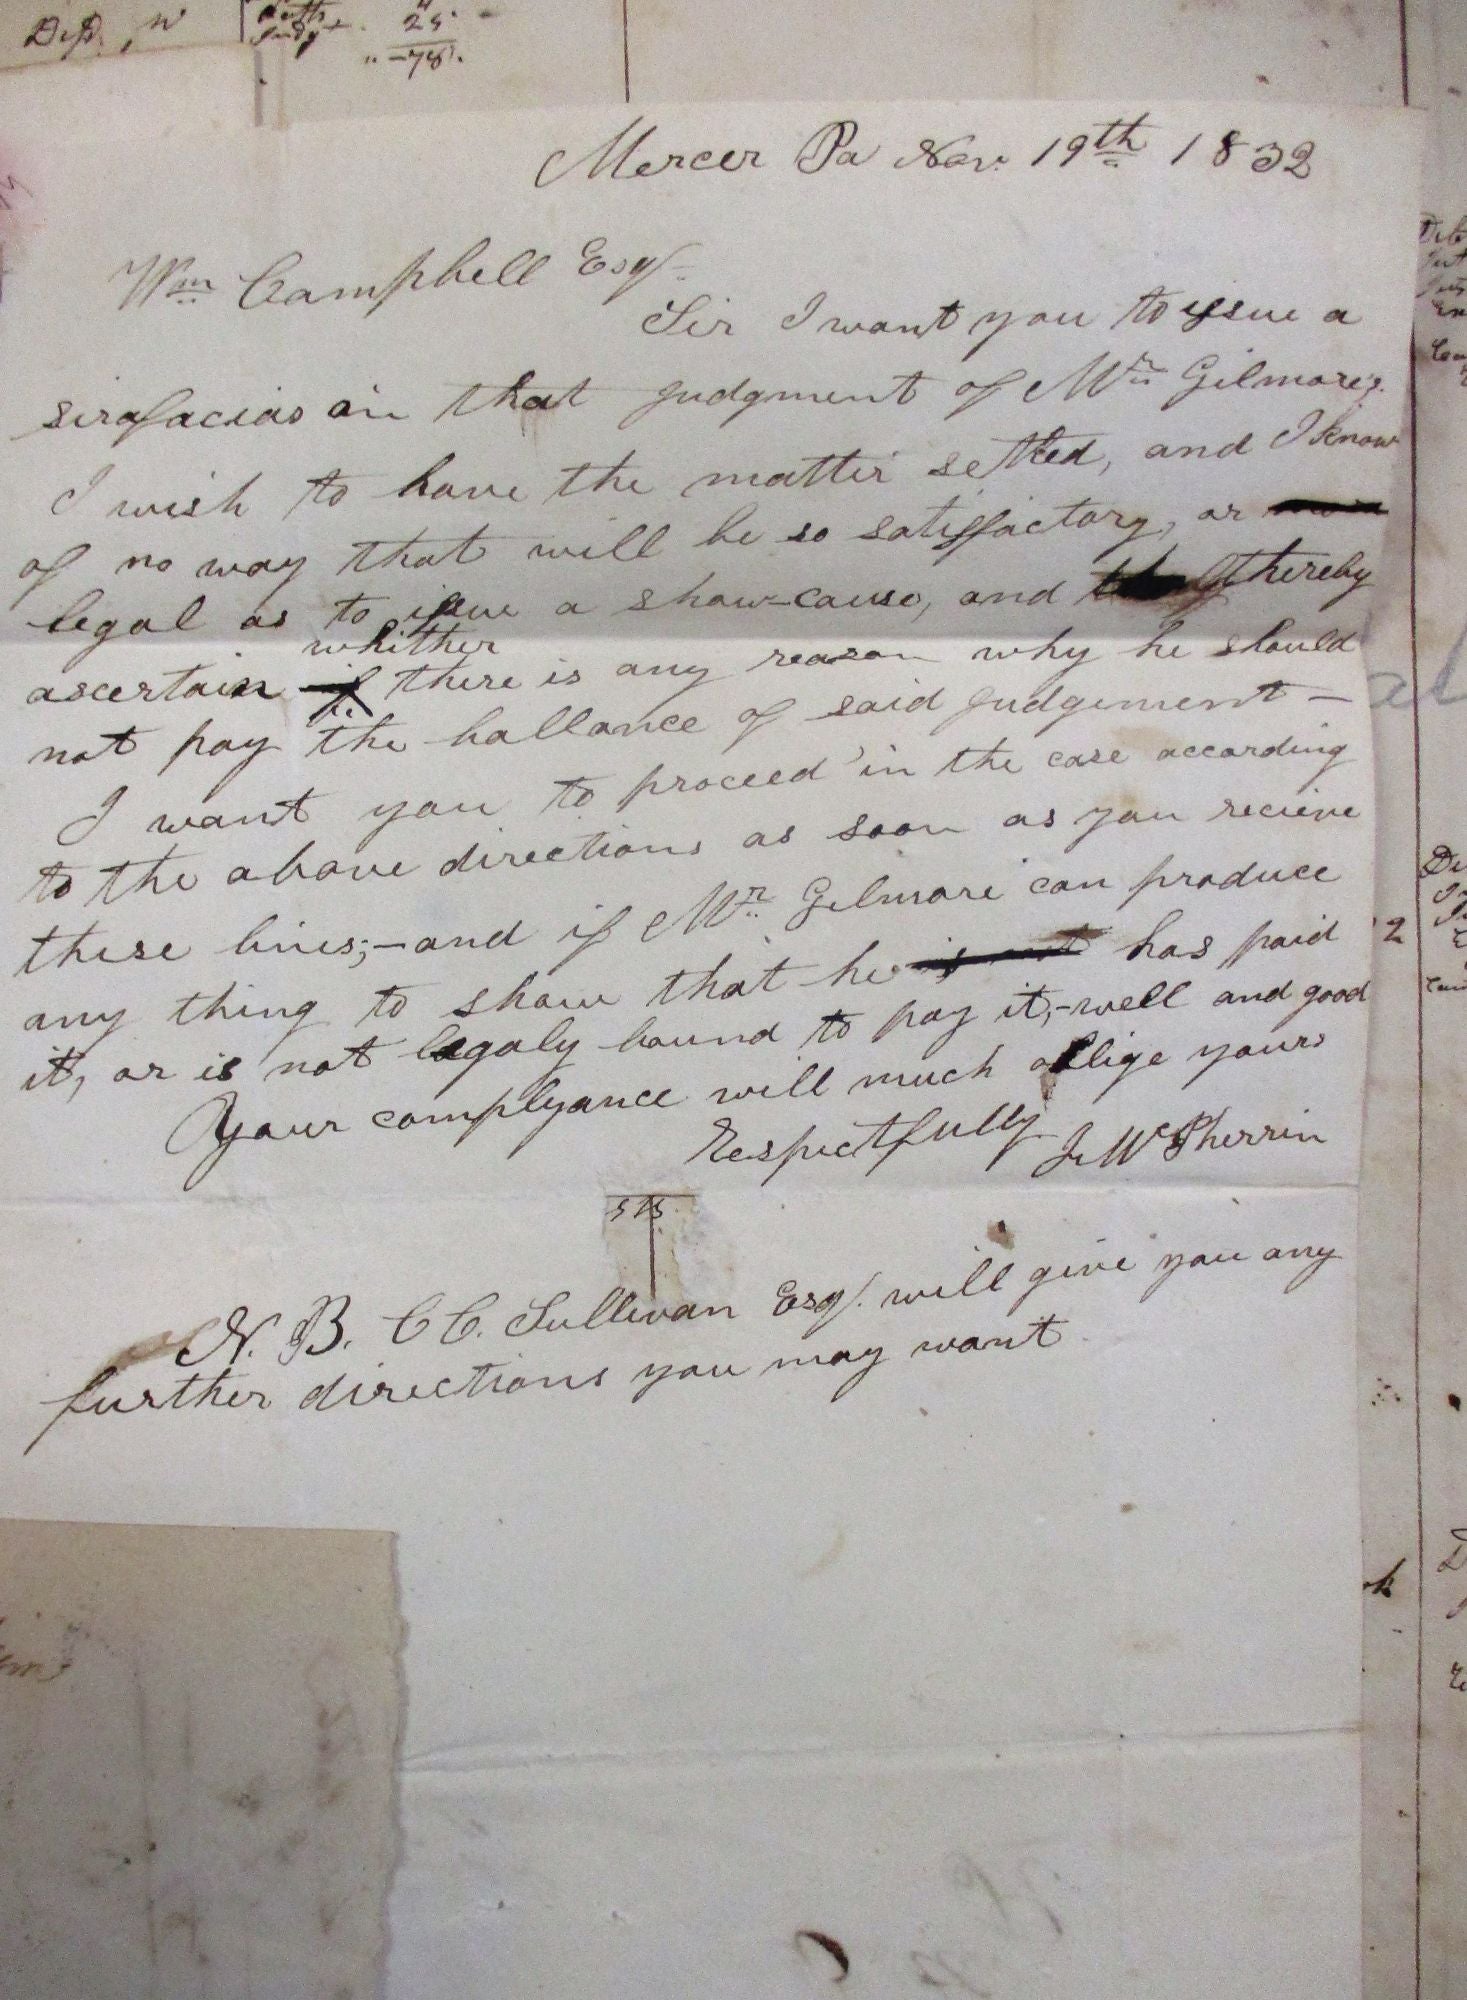 25
78
Mercer Pa Nov. 19th 1832
Wm Campbell Esqr
Sir I want you to issue a
sirafacias on that judgment of Mr Gilmore's.
I wish to have the matter settled, and I know
of no way that will be so satisffactory, or
legal as to issue a show-cause, and thereby
whither
ascertain if there is any reason why he should
not pay the ballance of said judgement —
I want you to proceed in the case according
to the above directions as soon as you recieve
these lines; — and if Mr Gilmore can produce
any thing to show that he is not has paid
it, or is not legaly bound to pay it, - well and good
Your complyance will much oblige yours
Respectfully J McSherrin
N. B. C C. Sullivan Esqr. will give you any
further directions you may want
2